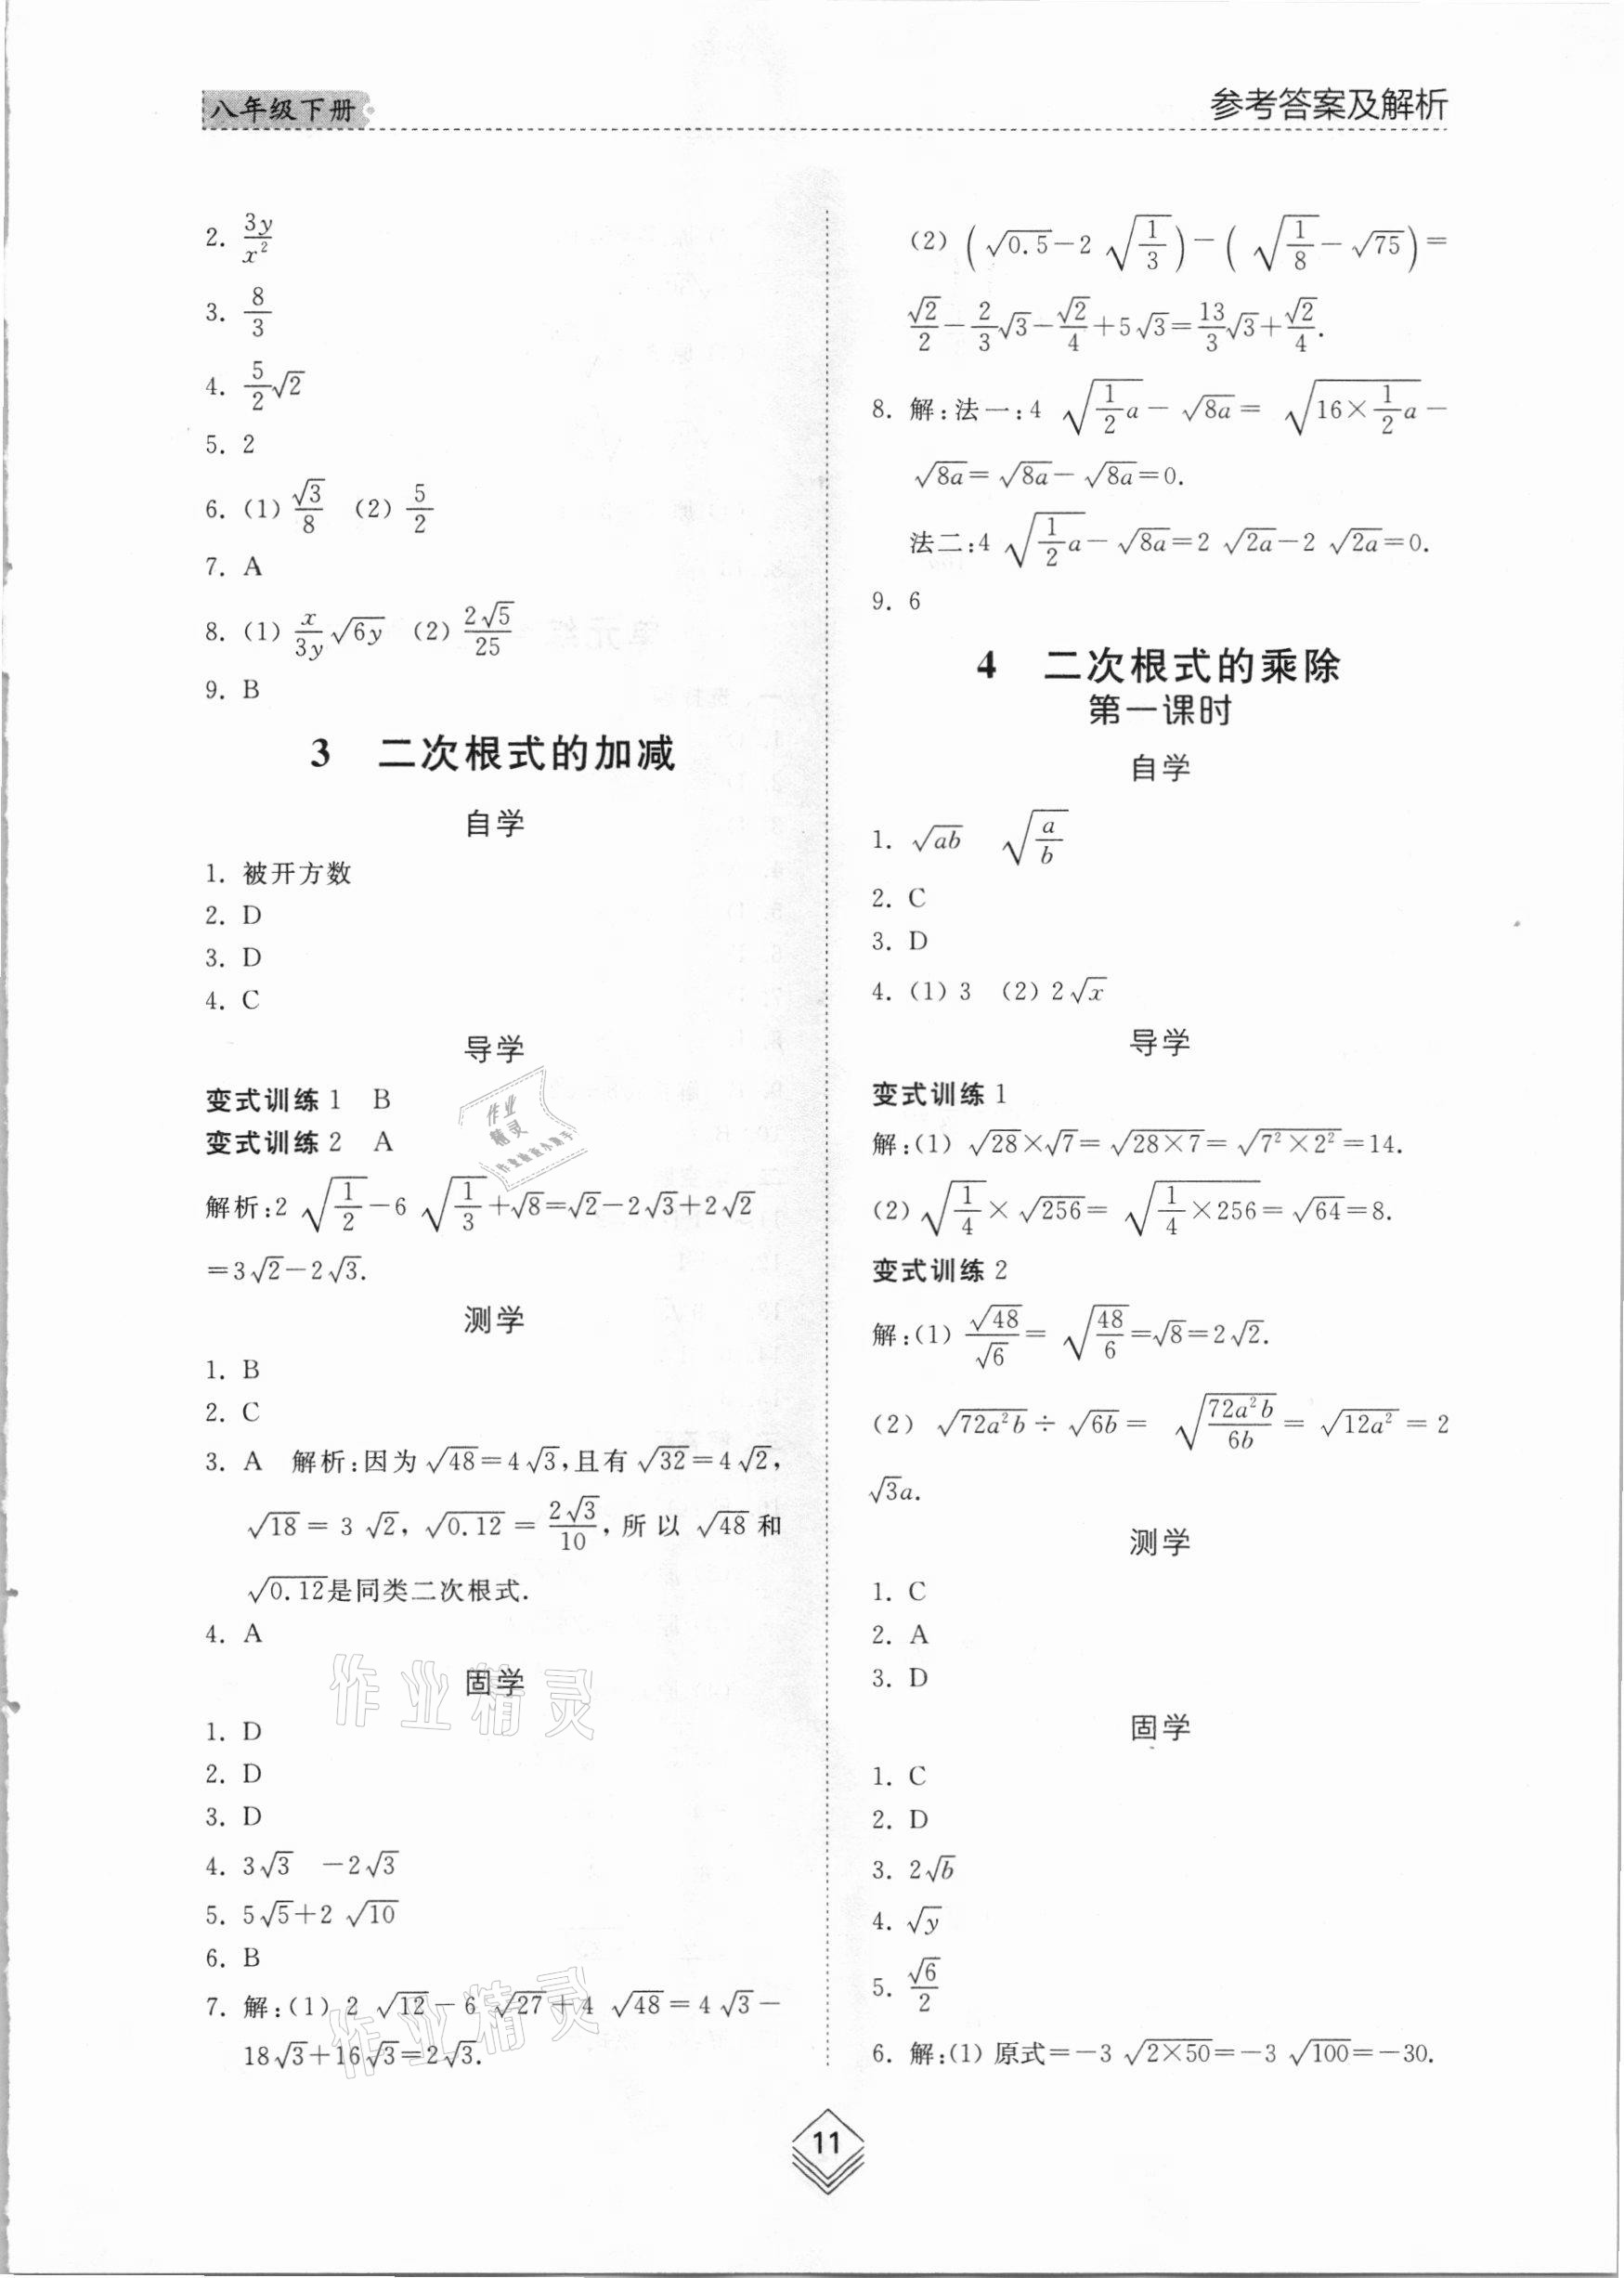 八年级下册
参考答案及解析
2. \frac{3y}{x^2}
3. \frac{8}{3}
4. \frac{5}{2}√2
5. 2
6. (1) \frac{√3}{8} (2) \frac{5}{2}
7. A
8. (1) \frac{x}{3y}√(6y) (2) \frac{2√5}{25}
9. B
3 二次根式的加减
自学
1. 被开方数
2. D
3. D
4. C
导学
变式训练1 B
变式训练2 A
解析:2√(\frac{1}{2})-6√(\frac{1}{3})+√8=√2-2√3+2√2
=3√2-2√3.
测学
1. B
2. C
3. A 解析:因为√48=4√3,且有√32=4√2,
√18=3√2,√0.12=\frac{2√3}{10},所以√48和
√0.12是同类二次根式.
4. A
固学
1. D
2. D
3. D
4. 3√3 -2√3
5. 5√5+2√10
6. B
7. 解:(1) 2√12-6√27+4√48=4√3-
18√3+16√3=2√3.
(2) (√0.5-2√(\frac{1}{3}))-(√(\frac{1}{8})-√75)=
\frac{√2}{2}-\frac{2}{3}√3-\frac{√2}{4}+5√3=\frac{13}{3}√3+\frac{√2}{4}.
8. 解:法一:4√(\frac{1}{2}a)-√(8a)=√(16×\frac{1}{2}a)-
√(8a)=√(8a)-√(8a)=0.
法二:4√(\frac{1}{2}a)-√(8a)=2√(2a)-2√(2a)=0.
9. 6
4 二次根式的乘除
第一课时
自学
1. √(ab) √(\frac{a}{b})
2. C
3. D
4. (1) 3 (2) 2√x
导学
变式训练1
解:(1) √28×√7=√(28×7)=√(7²×2²)=14.
(2) √(\frac{1}{4})×√256=√(\frac{1}{4}×256)=√64=8.
变式训练2
解:(1) \frac{√48}{√6}=√(\frac{48}{6})=√8=2√2.
(2) √(72a²b)÷√(6b)=√(\frac{72a²b}{6b})=√(12a²)=2
√3a.
测学
1. C
2. A
3. D
固学
1. C
2. D
3. 2√b
4. √y
5. \frac{√6}{2}
6. 解:(1) 原式=-3√(2×50)=-3√100=-30.
11
作业精灵
作业精灵
作业精灵